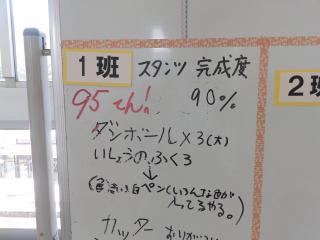 1班 スタンツ 完成度
2班
95てん! 90%
ダンボール×3(大)
いしょうのふくろ
↓
ペン(いろんな色が
入ってるやつ。)
↓
カッター